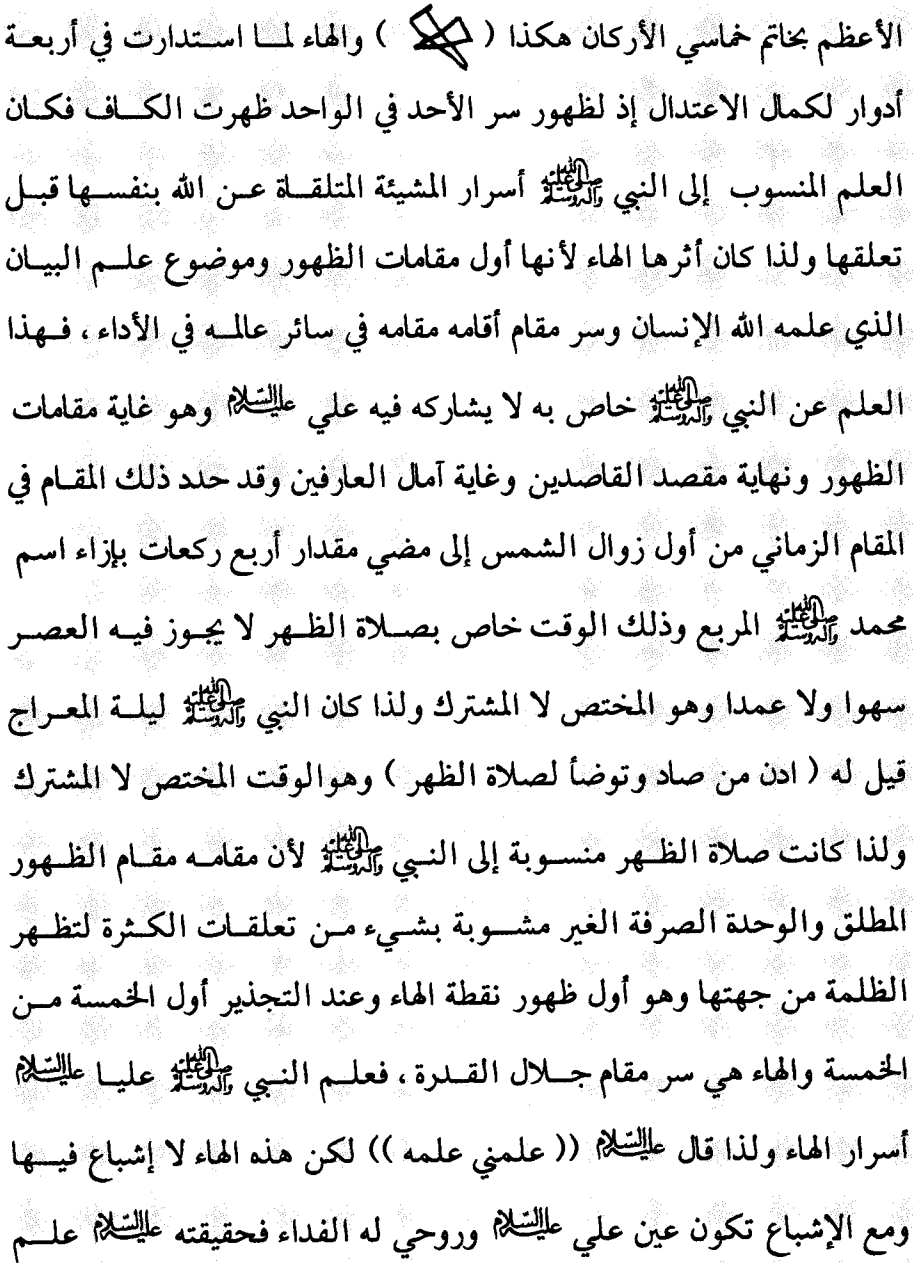 الأعظم بخاتم خماسي الأركان هكذا ( ) والهاء لمـا استدارت في أربعـة
أدوار لكمال الاعتدال إذ لظهور سر الأحد في الواحد ظهرت الكـاف فكـان
العلم المنسوب إلى النبي ﷺ أسرار المشيئة المتلقـاة عـن الله بنفسـها قبـل
تعلقها ولذا كان أثرها الهاء لأنها أول مقامات الظهور وموضوع علـم البيـان
الذي علمه الله الإنسان وسر مقام أقامه مقامه في سائر عالمـه في الأداء ، فـهذا
العلم عن النبي ﷺ خاص به لا يشاركه فيه علي عليه السلام وهو غاية مقامات
الظهور ونهاية مقصد القاصدين وغاية آمال العارفين وقد حدد ذلك المقـام في
المقام الزماني من أول زوال الشمس إلى مضي مقدار أربع ركعات بإزاء اسم
محمد ﷺ المربع وذلك الوقت خاص بصـلاة الظـهر لا يجـوز فيـه العصـر
سهوا ولا عمدا وهو المختص لا المشترك ولذا كان النبي ﷺ ليلـة المعـراج
قيل له ( ادن من صاد وتوضأ لصلاة الظهر ) وهوالوقت المختص لا المشترك
ولذا كانت صلاة الظـهر منسـوبة إلى النـبي ﷺ لأن مقامـه مقـام الظـهور
المطلق والوحدة الصرفة الغير مشـوبة بشـيء مـن تعلقـات الكـثرة لتظـهر
الظلمة من جهتها وهو أول ظهور نقطة الهاء وعند التجذير أول الخمسة مـن
الخمسة والهاء هي سر مقام جـلال القـدرة ، فعلـم النـبي ﷺ عليـا عليه السلام
أسرار الهاء ولذا قال عليه السلام (( علمني علمه )) لكن هذه الهاء لا إشباع فيـها
ومع الإشباع تكون عين علي عليه السلام وروحي له الفداء فحقيقته عليه السلام علـم